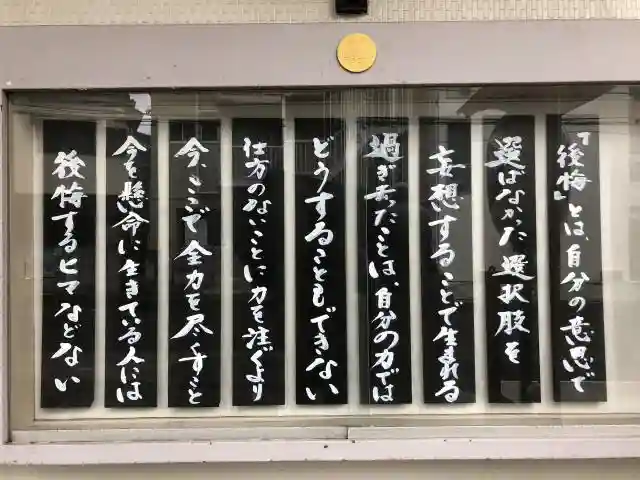 「後悔」とは、自分の意思で
選ばなかった選択肢を
妄想することで生まれる
過ぎ去ったことは、自分の力では
どうすることもできない
仕方のないことに力を注ぐより
今、ここで全力を尽くすこと
今を懸命に生きている人には
後悔するヒマなどない